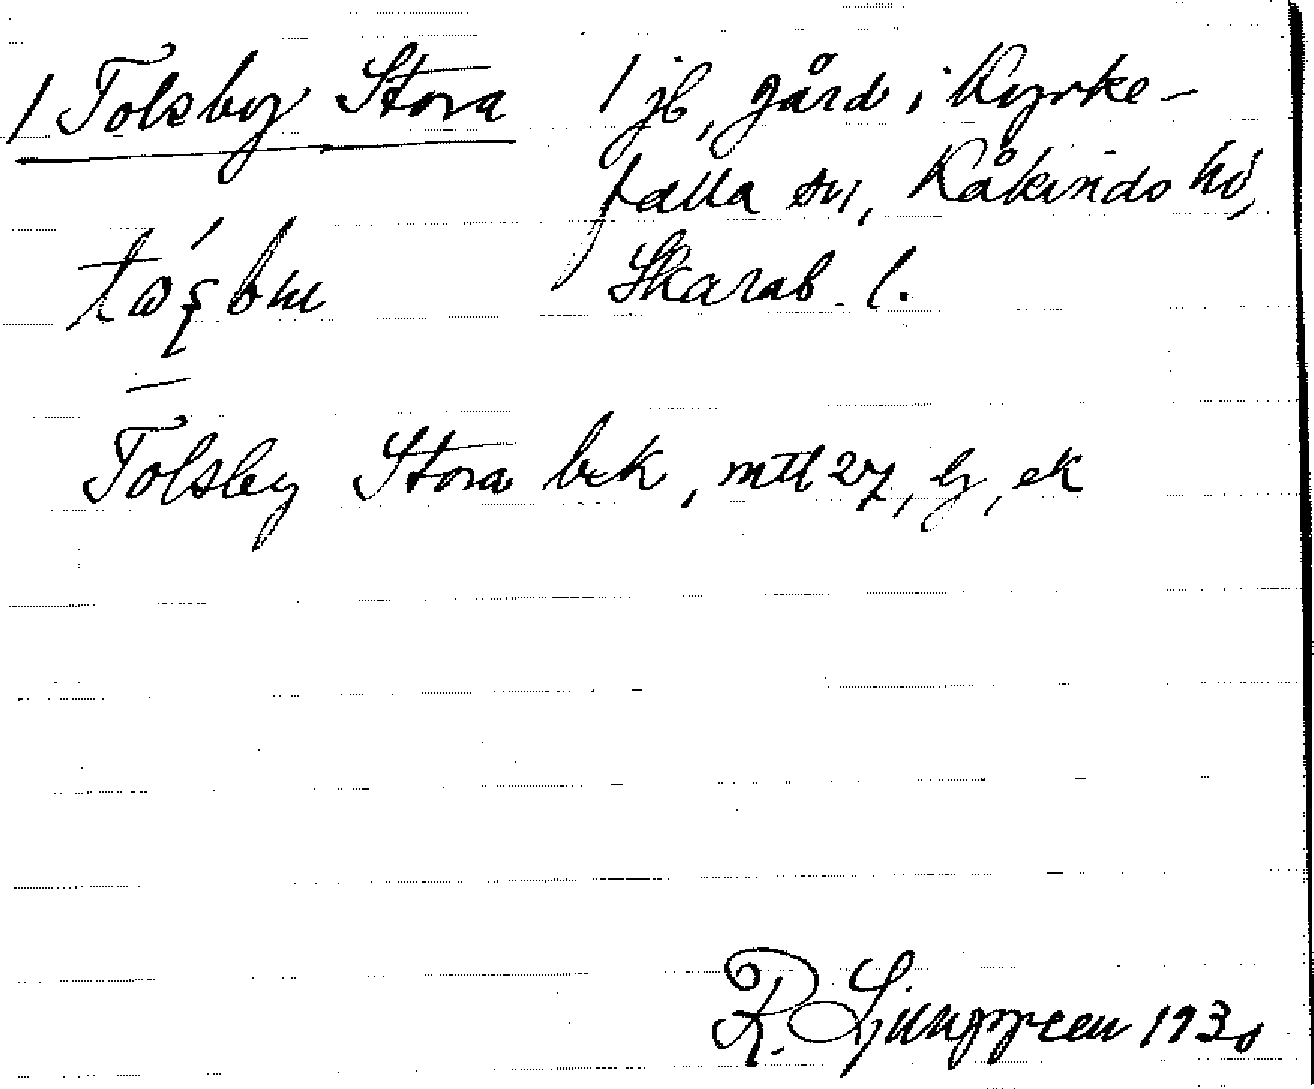 1 Tolsby Stora 1 jb, gård i Kyrke-
falla sn, Kåkinds hd,
Skarab. l.
Tolsby Stora bek, mtl 27, lj, ek
R. Ljunggren 1930